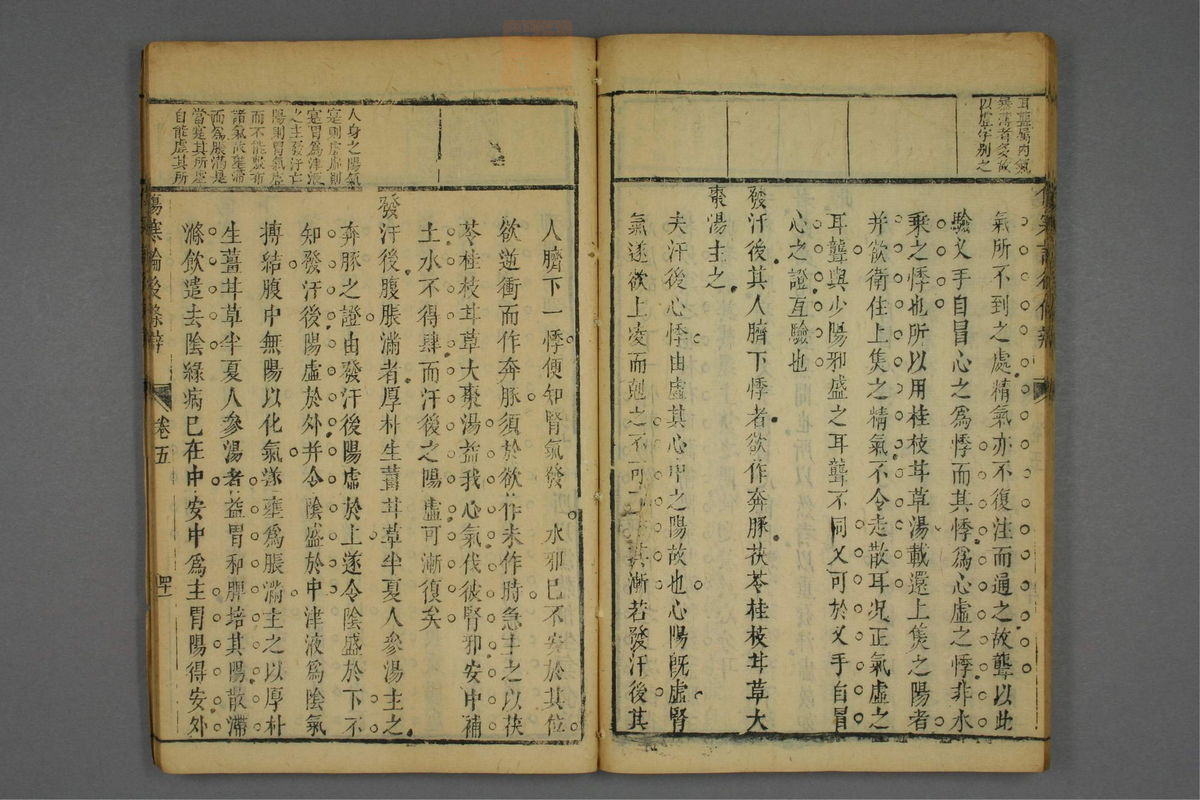 耳聾屬內氣
暴薄者多故
以虛字別之
氣所不到之處精氣亦不復注而通之故聾以此
驗叉手自冒心之為悸而其悸為心虛之悸非水
乘之悸也所以用桂枝甘草湯載還上焦之陽者
并欲衛住上焦之精氣不令走散耳况正氣虛之
耳聾與少陽邪盛之耳聾不同又可於叉手自冒
心之證互驗也
發汗後其人臍下悸者欲作奔豚茯苓桂枝甘草大
棗湯主之
夫汗後心悸由虛其心中之陽故也心陽既虛腎
氣遂欲上凌而剋之不可不防其漸若發汗後其
人身之陽氣
寔則虛虛則
寔胃為津液
之主發汗亡
陽則胃氣虛
而不能敷布
諸氣故壅滯
而為脹滿是
當寔其所虛
自能虛其所
人臍下一悸便知腎氣發
水邪已不安於其位
欲逆衝而作奔豚須於欲作未作時急主之以茯
苓桂枝甘草大棗湯益我心氣伐彼腎邪安中補
土水不得肆而汗後之陽虛可漸復矣
發汗後腹脹滿者厚朴生薑甘草半夏人參湯主之
奔豚之證由發汗後陽虛於上遂令陰盛於下不
知發汗後陽虛於外并令陰盛於中津液為陰氣
搏結腹中無陽以化氣遂壅為脹滿主之以厚朴
生薑甘草半夏人參湯者益胃和脾培其陽散滯
滌飲遣去陰緣病已在中安中為主胃陽得安外
傷寒論後條辨
卷五